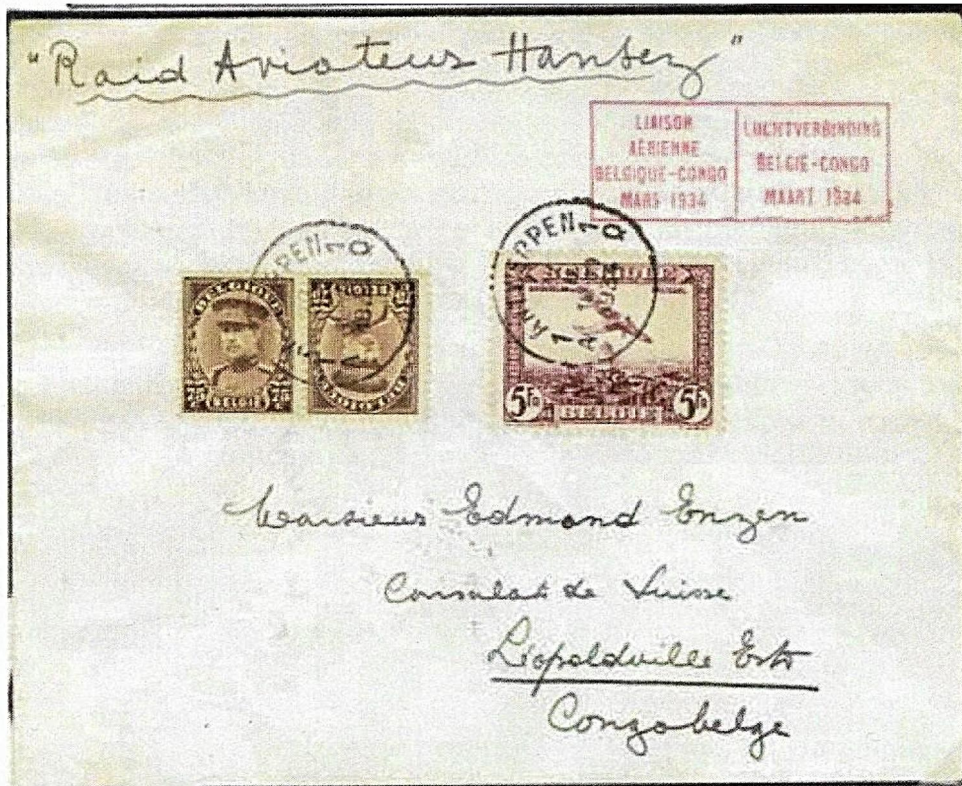 "Raid Aviateur Hansez"
LIAISON
AÉRIENNE
BELGIQUE-CONGO
MARS 1934
LUCHTVERBINDING
BELGIË-CONGO
MAART 1934
ANTWERPEN
1 1
BELGIQUE
75 75
BELGIË
BELGIQUE
75
BELGIË
ANTWERPEN
1 1
BELGIQUE
5Fr 5Fr
BELGIE
Monsieur Edmond Enzen
Consulat de Suisse
Léopoldville Est
Congobelge